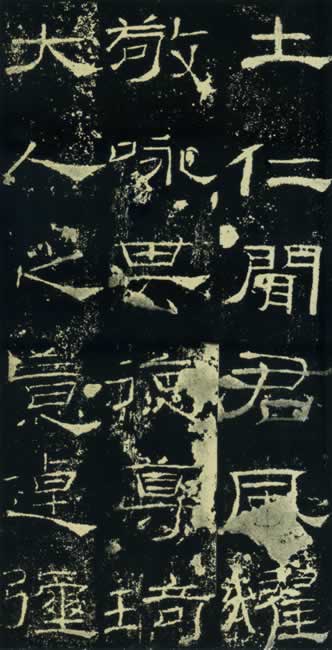 士仁聞君風燿
敬咏其德尊琦
大人之意逴彌